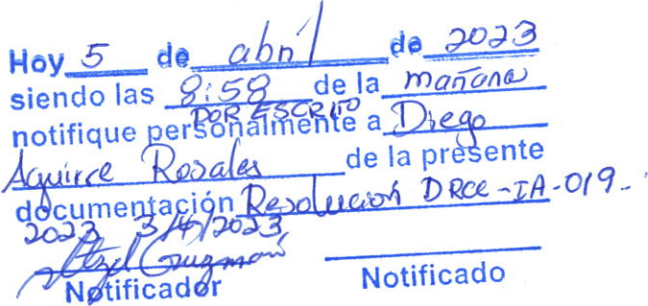 Hoy 5 de abril de 2023
siendo las 8:58 de la mañana
POR ESCRITO
notifique personalmente a Diego
Aguirre Rosales de la presente
documentación Resolución DRCE-IA-019-
2023 3/4/2023
Guzmán
Notificador Notificado